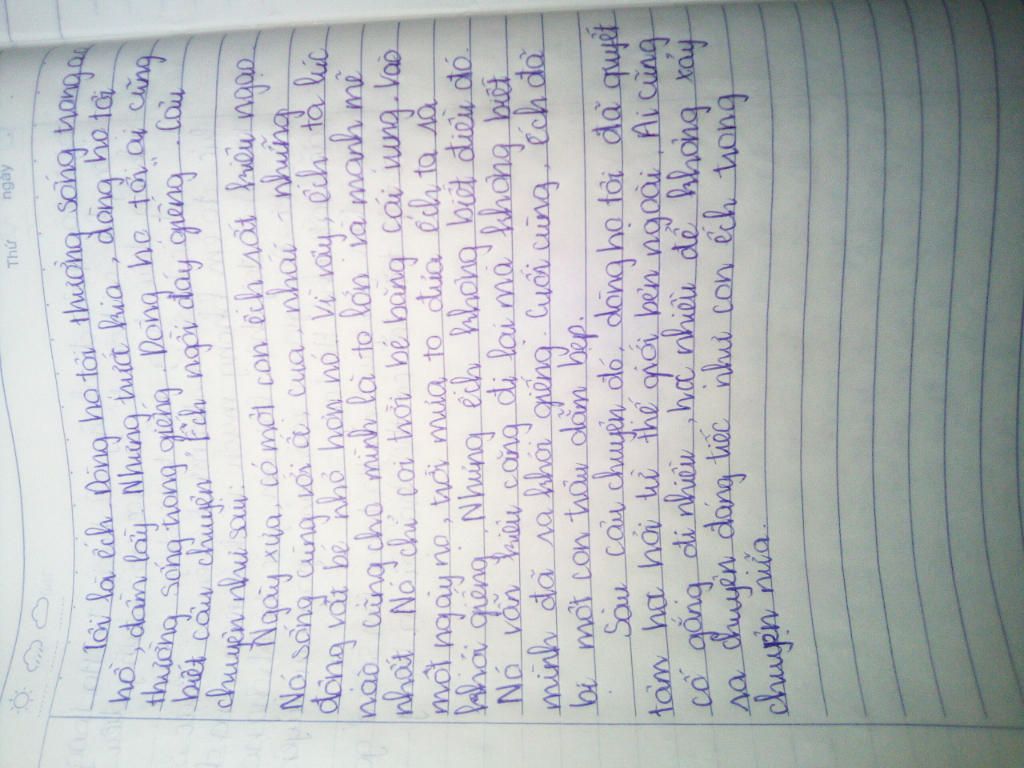 Thứ
ngày
Tôi là ếch. Dòng họ tôi thường sống trong ao
hồ, đầm lầy. Nhưng thuở kia, dòng họ tôi
thường sống trong giếng. Dòng họ tôi, ai cũng
biết câu chuyện "Ếch ngồi đáy giếng". Câu
chuyện như sau:
Ngày xưa, có một con ếch rất kiêu ngạo.
Nó sống cùng với ốc, cua, nhái - những
động vật bé nhỏ hơn nó. Vì vậy, ếch ta lúc
nào cũng cho mình là to lớn và mạnh mẽ
nhất. Nó chỉ coi trời bé bằng cái vung. Vào
một ngày nọ, trời mưa to đưa ếch ta ra
khỏi giếng. Nhưng ếch không biết điều đó.
Nó vẫn kiêu căng đi lại mà không biết
mình đã ra khỏi giếng. Cuối cùng, ếch đã
bị một con trâu dẫm bẹp.
Sau câu chuyện đó, dòng họ tôi đã quyết
tâm học hỏi từ thế giới bên ngoài. Ai cũng
cố gắng đi nhiều, học nhiều để không xảy
ra chuyện đáng tiếc như con ếch trong
chuyện nữa.